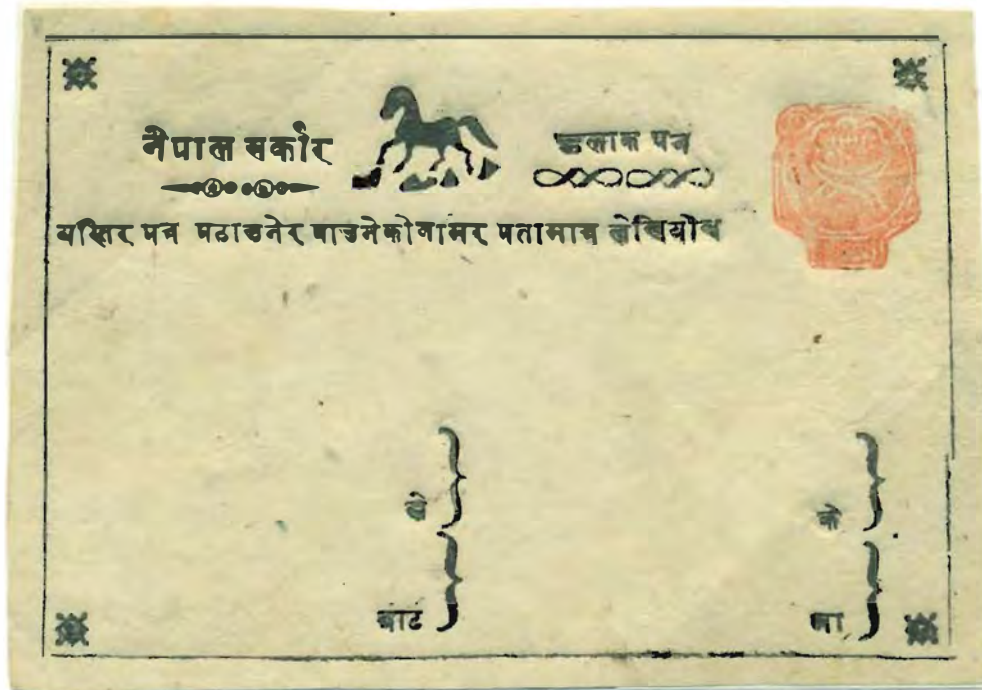 नेपाल सर्कार
हुलाक पत्र
यसतिर पत्र पठाउनेर पाउनेको नामर पतामात्र लेखियोस
ले
को
बाट
मा